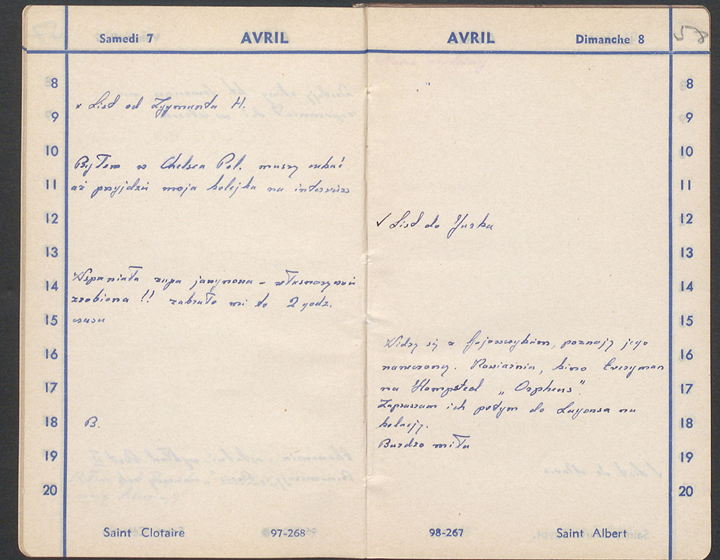 Samedi 7 AVRIL
8
x List od Zygmunta H.
9
10
Byłem w Chelsea Pol. muszę czekać
11
aż przyjdzie moja kolejka na interview
12
13
Wspaniała zupa jarzynowa – własnoręcznie
14
zrobiona !! zabrało mi to 2 godz.
15
czasu
16
17
18
B.
19
20
Saint Clotaire 97-268
AVRIL Dimanche 8
58
8
9
10
11
12
√ List do Jurka
13
14
15
Widzę się z poznaję jego
16
narzeczoną. kino Everyman
17
na Hampsted „Orpheus".
Zapraszam ich potym do Lyonsa na
18
kolację.
Bardzo miła
19
20
98-267 Saint Albert